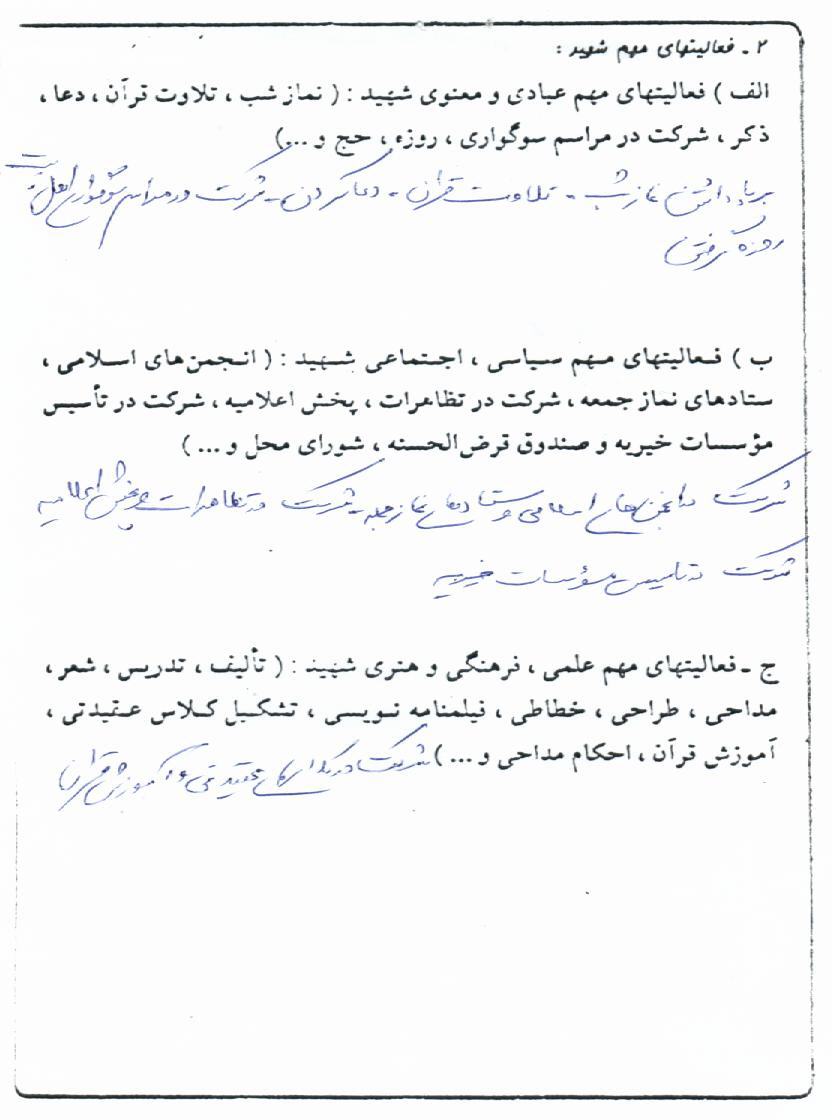 ۲ ـ فعالیتهای مهم شهید :
الف ) فعالیتهای مهم عبادی و معنوی شهید : ( نماز شب ، تلاوت قرآن ، دعا ،
ذکر ، شرکت در مراسم سوگواری ، روزه ، حج و ...)
برپا داشتن نماز شب - تلاوت قرآن - دعا کردن - شرکت در مراسم سوگواری اهل بیت
روزه گرفتن
ب ) فعالیتهای مهم سیاسی ، اجتماعی شهید : ( انجمن‌های اسلامی ،
ستادهای نماز جمعه ، شرکت در تظاهرات ، پخش اعلامیه ، شرکت در تأسیس
مؤسسات خیریه و صندوق قرض‌الحسنه ، شورای محل و ... )
شرکت در انجمن های اسلامی و ستادهای نماز جمعه - شرکت در تظاهرات و پخش اعلامیه
شرکت در تاسیس مؤسسات خیریه
ج ـ فعالیتهای مهم علمی ، فرهنگی و هنری شهید : ( تألیف ، تدریس ، شعر ،
مداحی ، طراحی ، خطاطی ، فیلمنامه نویسی ، تشکیل کلاس عقیدتی ،
آموزش قرآن ، احکام مداحی و ... ) شرکت در کلاسهای عقیدتی و آموزش قرآن